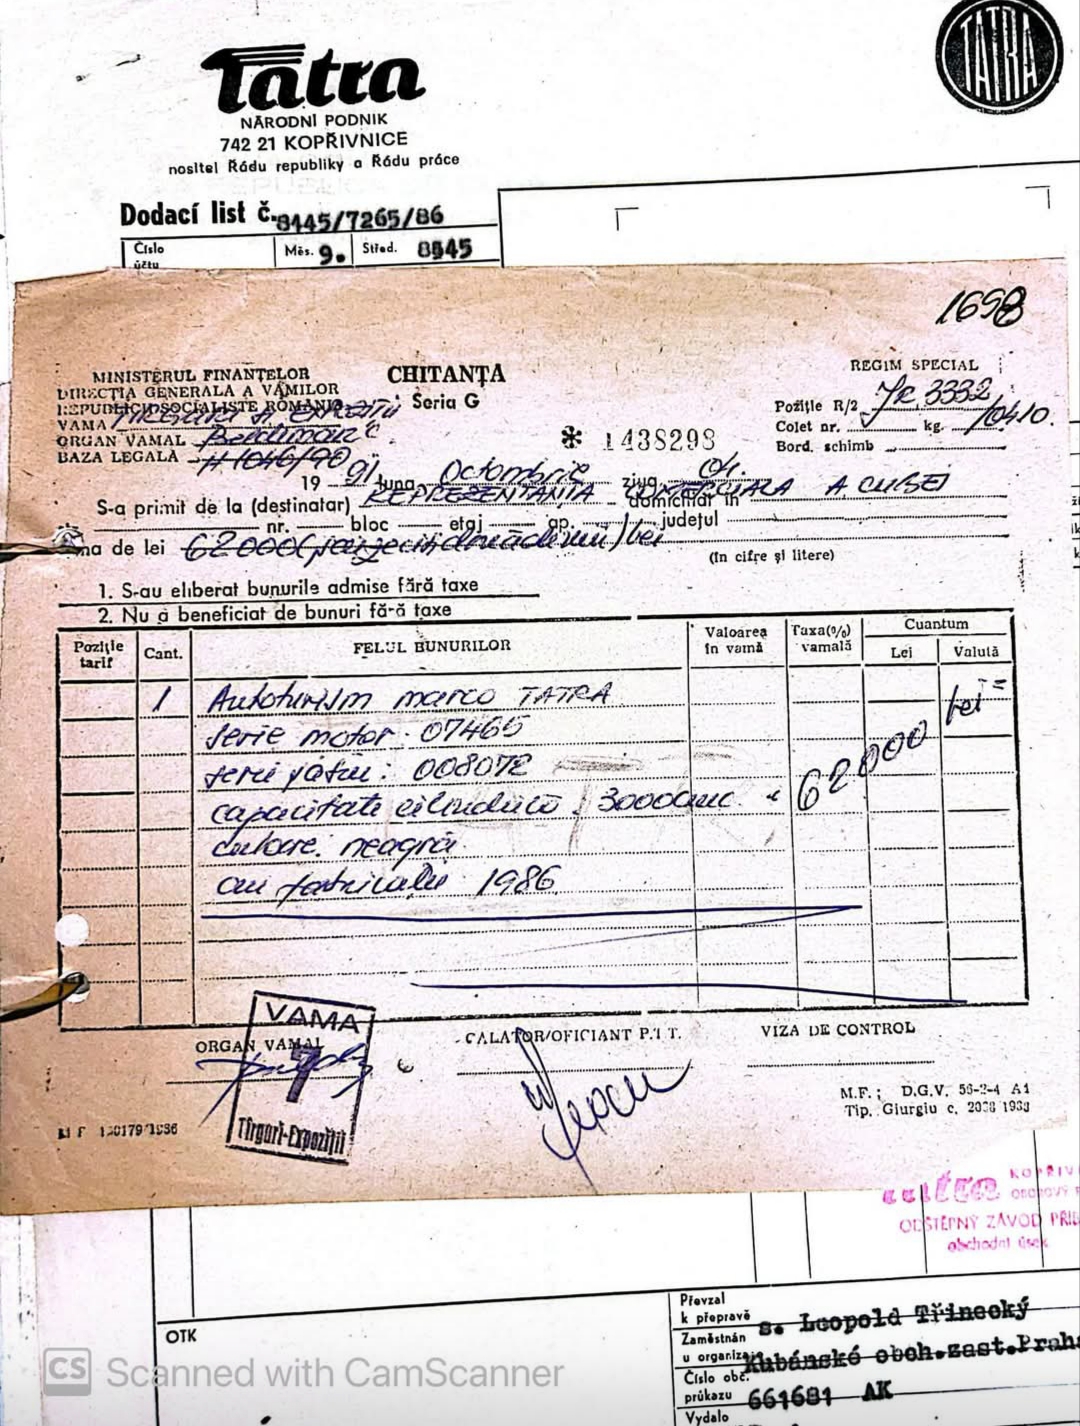 Tatra
TATRA
NÁRODNÍ PODNIK
742 21 KOPŘIVNICE
nositel Řádu republiky a Řádu práce
Dodací list č. 8445/7265/86
Číslo účtu
Měs. 9. Střed. 8545
1698
MINISTERUL FINANȚELOR
DIRECȚIA GENERALA A VĂMILOR
REPUBLICII SOCIALISTE ROMÂNIA
VAMA
ORGAN VAMAL
BAZA LEGALĂ
CHITANȚA
Seria G
* 1438298
REGIM SPECIAL
Poziție R/2 3332
Colet nr. kg. 10410.
Bord. schimb
19 91 luna Octombrie ziua 04.
S-a primit de la (destinatar) REPREZENTANTA COMERCIALA A CUBEI domiciliat în
nr. bloc etaj ap. județul
de lei 62000 lei
(în cifre și litere)
1. S-au eliberat bunurile admise fără taxe
2. Nu a beneficiat de bunuri fă-ă taxe
Poziție tarif Cant. FELUL BUNURILOR Valoarea în vamă Taxa(%) vamală Cuantum
Lei Valută
1 Autoturism marca TATRA
serie motor 07465
008072
capacitate cilindrica 3000 cmc. 62000 lei =
culoare: neagră
an fabricatie 1986
ORGAN VAMAL
CALATOR/OFICIANT P.T T.
VIZA DE CONTROL
VAMA
7
Tîrguri-Expoziții
M.F.; D.G.V. 56-2-4 A1
Tip. Giurgiu c.
ODŠTĚPNÝ ZÁVOD
obchodní úsek
OTK
Převzal
k přepravě s. Leopold Třinecký
Zaměstnán
u organizace Kubánské obch.zast.Praha
Číslo obč.
průkazu 661681 AK
Vydalo
CS Scanned with CamScanner